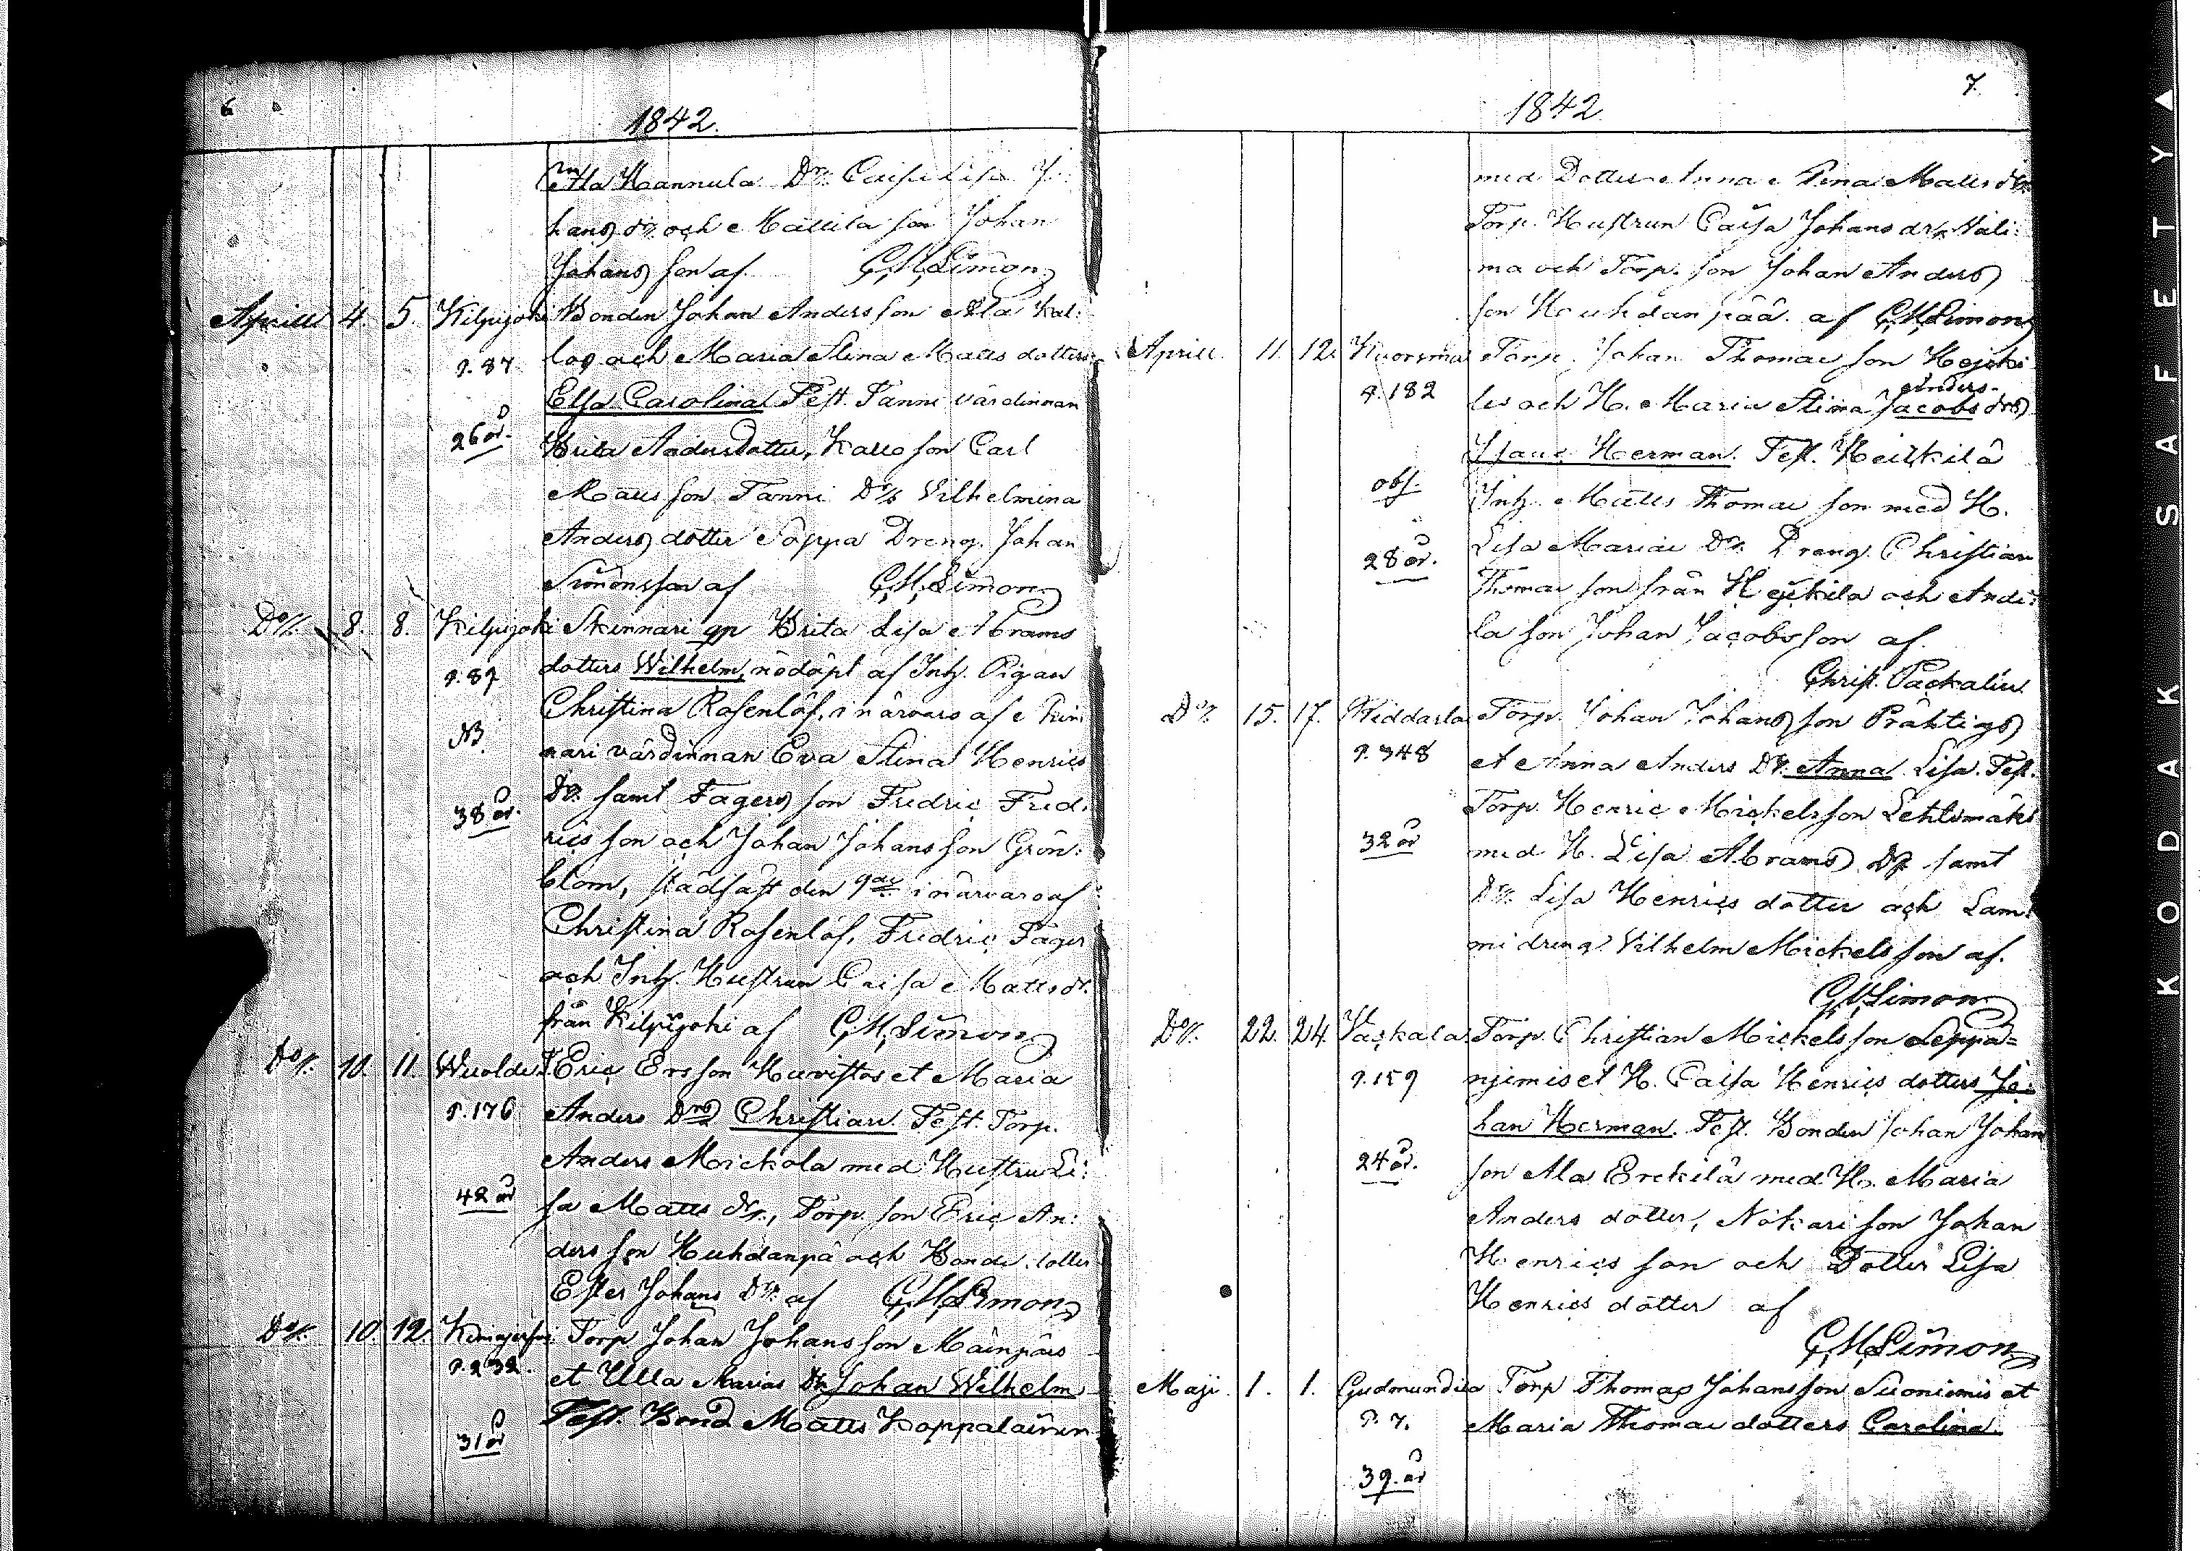 6
1842.
Ala Hannula Dr. Caisa Lisa Jo:
hans dr och Mattila son Johan
Johans son af GM Simon
Aprill 4. 5. Kilpijoki Bonden Johan Andersson Ala Kal:
p. 87 los och Maria Stina Matts dotters
Elsa Carolina Test. Tanni värdinnan
26 år. Brita Andersdotter, Kallo son Carl
Matts son Tanni Dr Vilhelmina
Anders dotter Soppa Dreng. Johan
Simonsson af GM Simon
Do 8. 8. Kilpijoki Skinnari qp Brita Lisa Abrams
p. 89 dotters Wilhelm, nödöpt af Inh. Pigan
Christina Rosenlöf, i närvaro af Skin
NB. nari värdinnan Eva Stina Henrics
38 år. Dr. samt Fagers son Fredric Fred:
rics son och Johan Johansson Grön:
blom, stadfäst den 9de i närvaro af
Christina Rosenlöf, Fredric Fager
och Inh. Hustrun Caisa Matts dr.
från Kilpijoki af GM Simon
Do 10. 11. Wuolde T Eric Ersson Huvistos et Maria
p. 176 Anders Drs Christian. Test. Torp.
Anders Mickola med Hustru Li:
42 år sa Matts dr., Torp. son Eric An:
ders son Huhdanpä och Bonde dotter
Ester Johans Dr. af GM Simon
Do 10. 12. Torp Johan Johansson Mainpäs
p. 232. et Ulla Marias Dr. Johan Wilhelm
31 år Test. Bond Matts Koppalainen
7.
1842
med Dotter Anna Stina Matts dr.
Torp. Hustrun Caisa Johans dr. Näli:
ma och Torp. son Johan Anders
son Huhdanpää. af GM Simon
Aprill. 11. 12. Kuorsma Torp. Johan Thomae son Hejoki
Anders
p. 182 les och H. Maria Stina Jacobs drs
Isaac Herman. Test. Heikkilä
obs. Inh. Matts Thomae son med H.
28 år. Lisa Mariae Dr. Dreng. Christian
Thomae son från Hejkila och Ande:
la son Johan Jacobsson af.
Christ. Packalin
Do 15. 17. Widdarla Torp. Johan Johans son Prähtigs
p. 348 et Anna Anders Dr. Anna Lisa. Test.
Torp. Henric Mickelsson Lehtimäks
32 år med H. Lisa Abrams Dr. samt
Dr. Lisa Henrics dotter och Lam:
mi dreng Vilhelm Mickelsson af.
GM Simon
Do 22. 24. Jackala Torp. Christian Mickelsson Leppä=
p. 159 njemis et H. Caisa Henrics dotters Jo:
han Herman. Test. Bonden Johan Johan
24 år. son Ala Erckilä med H. Maria
Anders dotter, Nokari son Johan
Henrics son och Dotter Lisa
Henrics dotter af
GM Simon
Maji. 1. 1. Gudmundila Torp Thomas Johansson Suoniemis et
p. 7. Maria Thomae dotters Carolina.
39. år
KODAK SAFETY▲